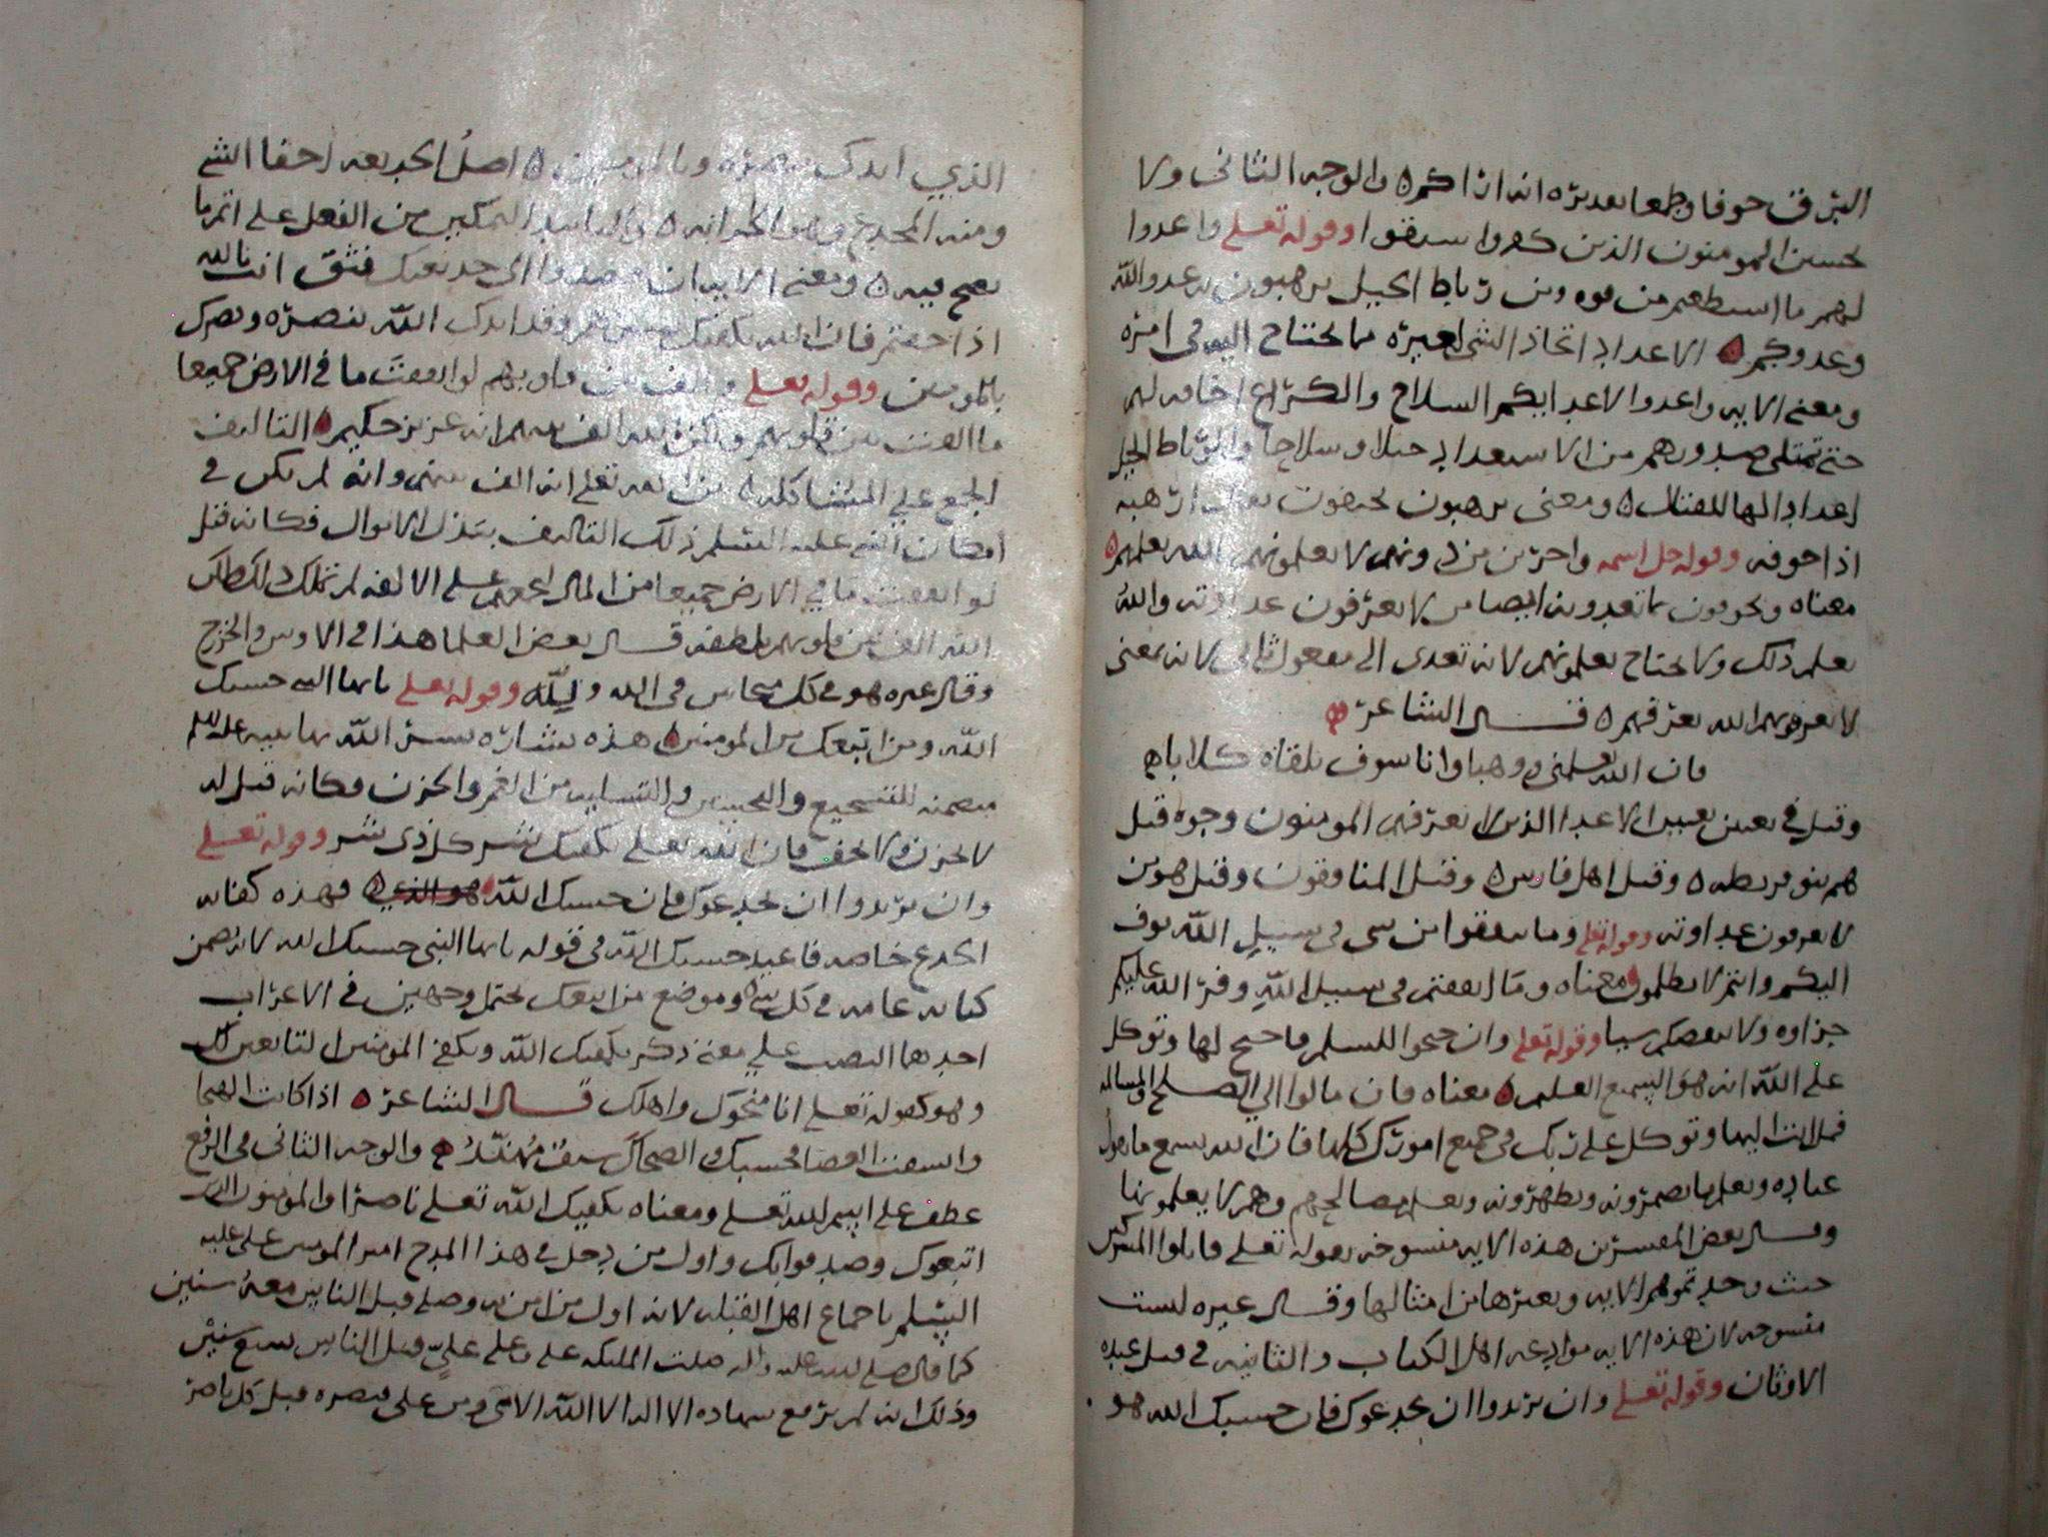 البرق خوفا وطمعا تقديره انه اراكم ٥ والوجه الثاني ولا
تحسبن المومنون الذين كفروا سبقوا وقوله تعلى واعدوا
لهم ما استطعتم من قوه ومن رباط الخيل ترهبون به عدو الله
وعدوكم ٥ الاعداد اتخاذ الشي لغيره مما يحتاج اليه في امره
ومعنى الايه واعدوا لاعدايكم السلاح والكراع اخافه لهم
حتى تمتلى صدورهم من الاستعداد خيلا وسلاحا والرباط الخيل
اعدادا لها للقتال ٥ ومعنى ترهبون تخيفون يقال ارهبه
اذا خوفه وقوله جل اسمه واخرين من دونهم لا تعلمونهم الله يعلمهم ٥
معناه وتخوفون بما تعدونه ايضا من لا تعرفون عداوته والله
يعلم ذلك ولا يحتاج تعلمونهم لانه تعدى الى مفعول ثاني لانه بمعنى
لا تعرفونهم الله يعرفهم ٥ قال الشاعر ٥
فان الله يعلمني ووهبا وانا سوف يلقاه كلاباه
وقيل في تعيين الاعدا الذين لا يعرفهم المومنون وجوه قيل
هم بنو قريظه ٥ وقيل اهل فارس ٥ وقيل المنافقون وقيل هو من
لا تعرفون عداوته وقوله تعلى وما تنفقوا من شي في سبيل الله يوف
اليكم وانتم لا تظلمون معناه وما انفقتم في سبيل الله وفر الله عليكم
جزاوه ولا ينقصكم شيا وقوله تعلى وان جنحوا للسلم فاجنح لها وتوكل
على الله انه هو السميع العليم ٥ معناه فان مالوا الي الصلح والمسالمه
فمل انت اليها وتوكل على ربك في جميع امورك كلها فان الله يسمع ما يقول
عباده ويعلم ما يضمرونه ويظهرونه ويعلم مصالحهم وهم لا يعلمونها
وقال بعض المفسرين هذه الايه منسوخه بقوله تعلى فاقتلوا المشركين
حيث وجدتموهم الايه وبغيرها من امثالها وقال غيره ليست
منسوخه لان هذه الايه موادعه اهل الكتاب والثانيه في قتل عبده
الاوثان وقوله تعلى وان يريدوا ان يخدعوك فان حسبك الله هو
الذي ايدك بنصره وبالمومنين ٥ اصل الخديعه اخفا الشي
ومنه المخدع وهو الخزانه ٥ التمكين من الفعل على اتم ما
يصح فيه ٥ ومعنى الايه ان قصدوا الى خديعتك فثق انت بالله
اذا خفتم فان الله يكفيك وقد ايدك الله بنصره ونصرك
بالمومنين وقوله تعلى والف بين قلوبهم لو انفقت ما في الارض جميعا
ما الفت بين قلوبهم ولكن الله الف بينهم انه عزيز حكيم ٥ التاليف
الجمع علي المشاكله ٥ تعلى انه الف بينهم وانه لم يكن في
امكان النبي عليه السلم ذلك التاليف ببذل الاموال فكانه قيل
لو انفقت ما في الارض جميعا من المال لجمعهم على الالفه لم تملك ذلك لكن
الله الف بين قلوبهم بلطفه قال بعض العلما هذا في الاوس والخزرج
وقال غيره هو في كل متحابين في الله ولله وقوله تعلى يا ايها النبي حسبك
الله ومن اتبعك من المومنين ٥ هذه بشاره بشر الله بها نبيه عليه السلم
متضمنه للتشجيع والتسليه من الغم والحزن فكانه قيل له
لا تحزن ولا تخف فان الله تعلى يكفيك شر كل ذي شر وقوله تعلى
وان يريدوا ان يخدعوك فان حسبك الله هو الذي ٥ فهذه كفايه
الخدع خاصه فاعيد حسبك الله في قوله يا ايها النبي حسبك الله لانه تضمن
كفايه عامه في كل شي ٥ وموضع من اتبعك يحتمل وجهين في الاعراب
احدهما النصب علي معنى ذكر يكفيك الله ويكفي المومنين التابعين لك
وهو كقوله تعلى انا منجوك واهلك قال الشاعر ٥ اذا كانت الهيجا
وانشقت العصا فحسبك والضحاك سيف مهند ٥ والوجه الثاني في الرفع
عطف على اسم الله تعلى ومعناه يكفيك الله تعلى ناصرا والمومنون الذين
اتبعوك وصدقوا بك واول من يدخل في هذا المدح امير المومنين على عليه
السلم باجماع اهل القبله لانه اول من امن به وصلى قبل الناس معه سنين
كما قال صلى الله عليه واله صلت الملئكه على وعلى علي قبل الناس سبع سنين
وذلك انه لم يرفع شهاده الا اله الا الله الا مني ومن على فنصره قبل كل ناصر